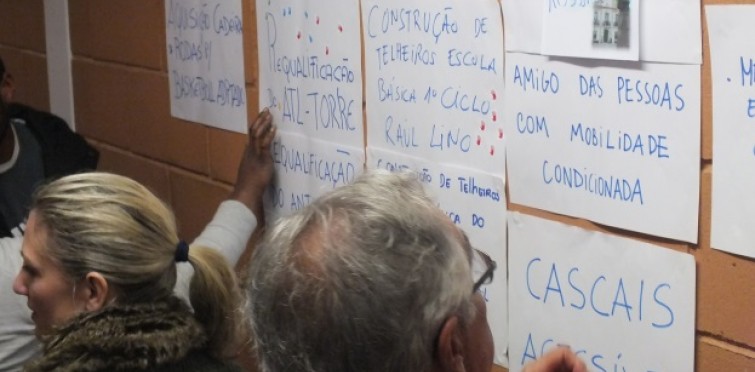 AQUISIÇÃO CADEIRA
RODAS P/
BASKETBALL ADAPTADO
REQUALIFICAÇÃO
DE ATL-TORRE
REQUALIFICAÇÃO
DO
CONSTRUÇÃO DE
TELHEIROS ESCOLA
BÁSICA 1º CICLO
RAÚL LINO
DE TELHEIROS
DO
AMIGO DAS PESSOAS
COM MOBILIDADE
CONDICIONADA
CASCAIS